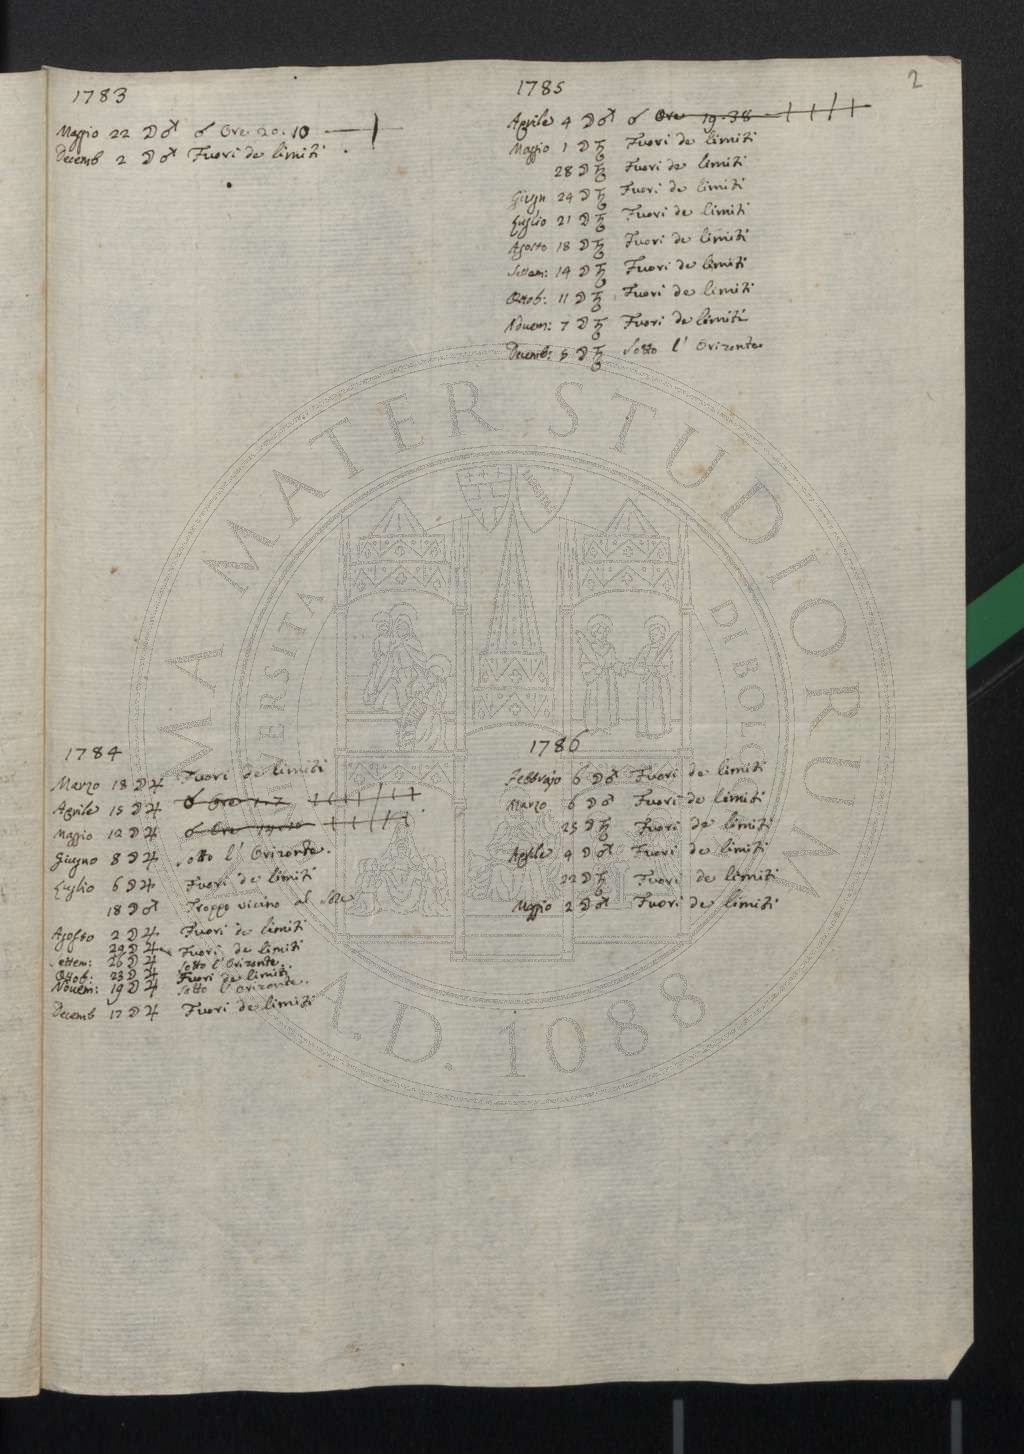 2
1783
Maggio 22 ☽ ♂ ☌ Ore 20. 10
Decemb 2 ☽ ♂ Fuori de limiti
1784
Marzo 18 ☽ ♃ Fuori de limiti
Aprile 15 ☽ ♃ ☌ Ore
Maggio 12 ☽ ♃ ☌ Ore
Giugno 8 ☽ ♃ sotto l' Orizonte.
Luglio 6 ☽ ♃ Fuori de limiti
18 ☽ ♂ Troppo vicino al Sole
Agosto 2 ☽ ♃ Fuori de limiti
29 ☽ ♃ Fuori de limiti
Settem: 26 ☽ ♃ sotto l' Orizonte.
Ottob: 23 ☽ ♃ Fuori de limiti
Novem: 19 ☽ ♃ sotto l' Orizonte.
Decemb 17 ☽ ♃ Fuori de limiti
1785
Aprile 4 ☽ ♂ ☌ Ore 19. 38
Maggio 1 ☽ ♄ Fuori de limiti
28 ☽ ♄ Fuori de limiti
Giugn 24 ☽ ♄ Fuori de limiti
Luglio 21 ☽ ♄ Fuori de limiti
Agosto 18 ☽ ♄ Fuori de limiti
Settem: 14 ☽ ♄ Fuori de limiti
Ottob: 11 ☽ ♄ Fuori de limiti
Novem: 7 ☽ ♄ Fuori de limiti
Decemb: 5 ☽ ♄ Sotto l' Orizonte
1786
Febbrajo 6 ☽ ♂ Fuori de limiti
Marzo 6 ☽ ♂ Fuori de limiti
25 ☽ ♄ Fuori de limiti
Aprile 4 ☽ ♂ Fuori de limiti
22 ☽ ♄ Fuori de limiti
Maggio 2 ☽ ♂ Fuori de limiti
ALMA MATER STUDIORUM
A.D. 1088